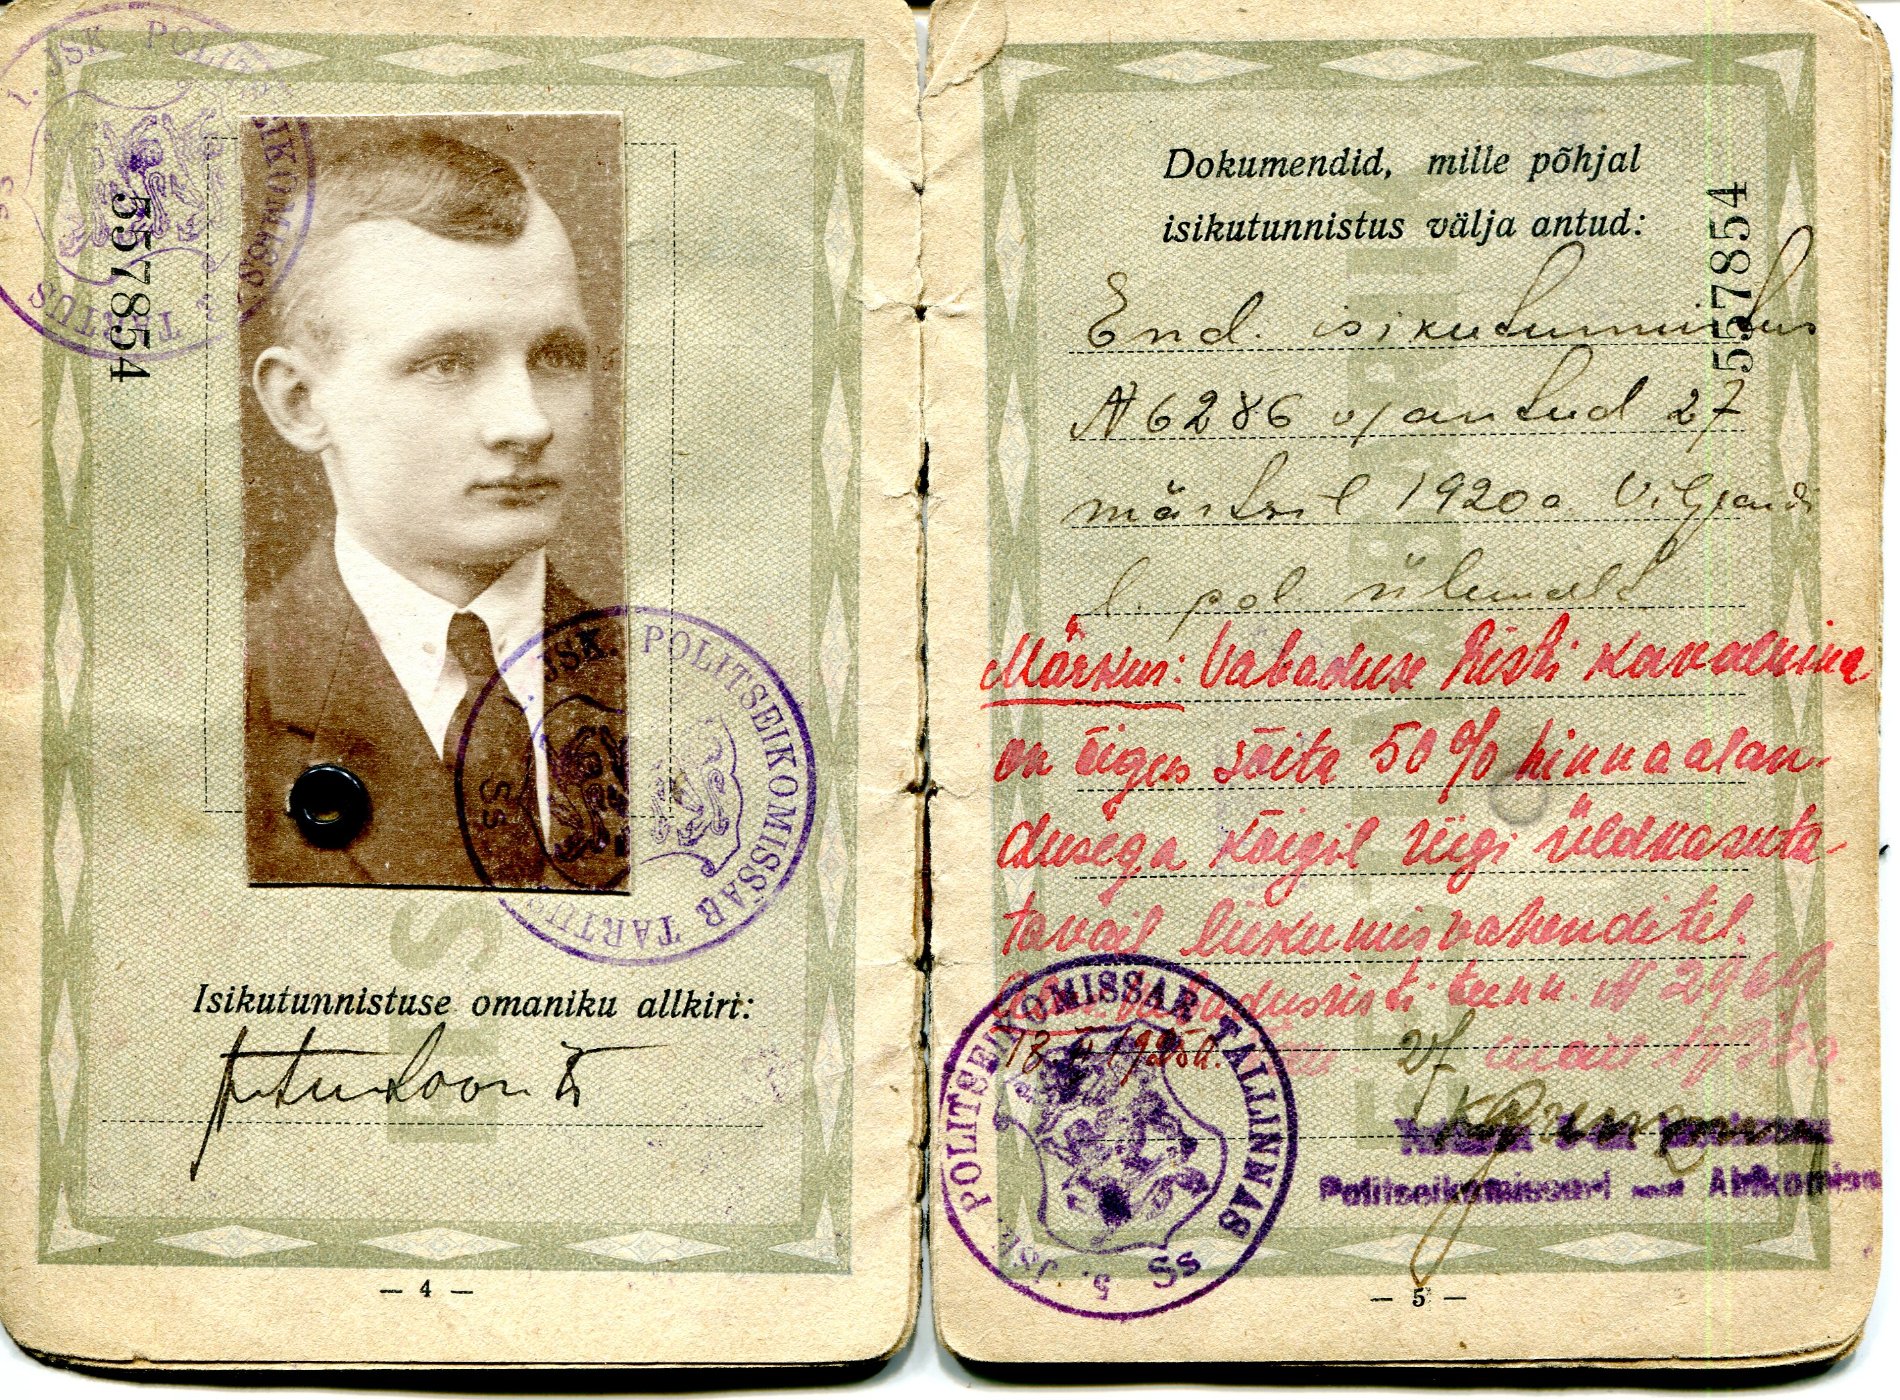 1. JSK POLITSEIKOMISSAR TARTUS
557854
1. JSK. POLITSEIKOMISSAR TARTUS
Ss
Isikutunnistuse omaniku allkiri:
— 4 —
Dokumendid, mille põhjal
isikutunnistus välja antud:
557854
End. isikutunnistus
N 6286 v/antud 27
märtsil 1920 a. Viljandi
l. pol ülemalt
Märkus: Vabaduse Risti kavalerina
on õigus sõita 50% hinnaalan-
dusega kõigil riigi üldkasuta-
tavail liikumisvahenditel.
Vabadusristi tunn. N
27
5. JSK. POLITSEIKOMISSAR TALLINNAS
Ss
Politseikomissari Abikomissar
— 5 —